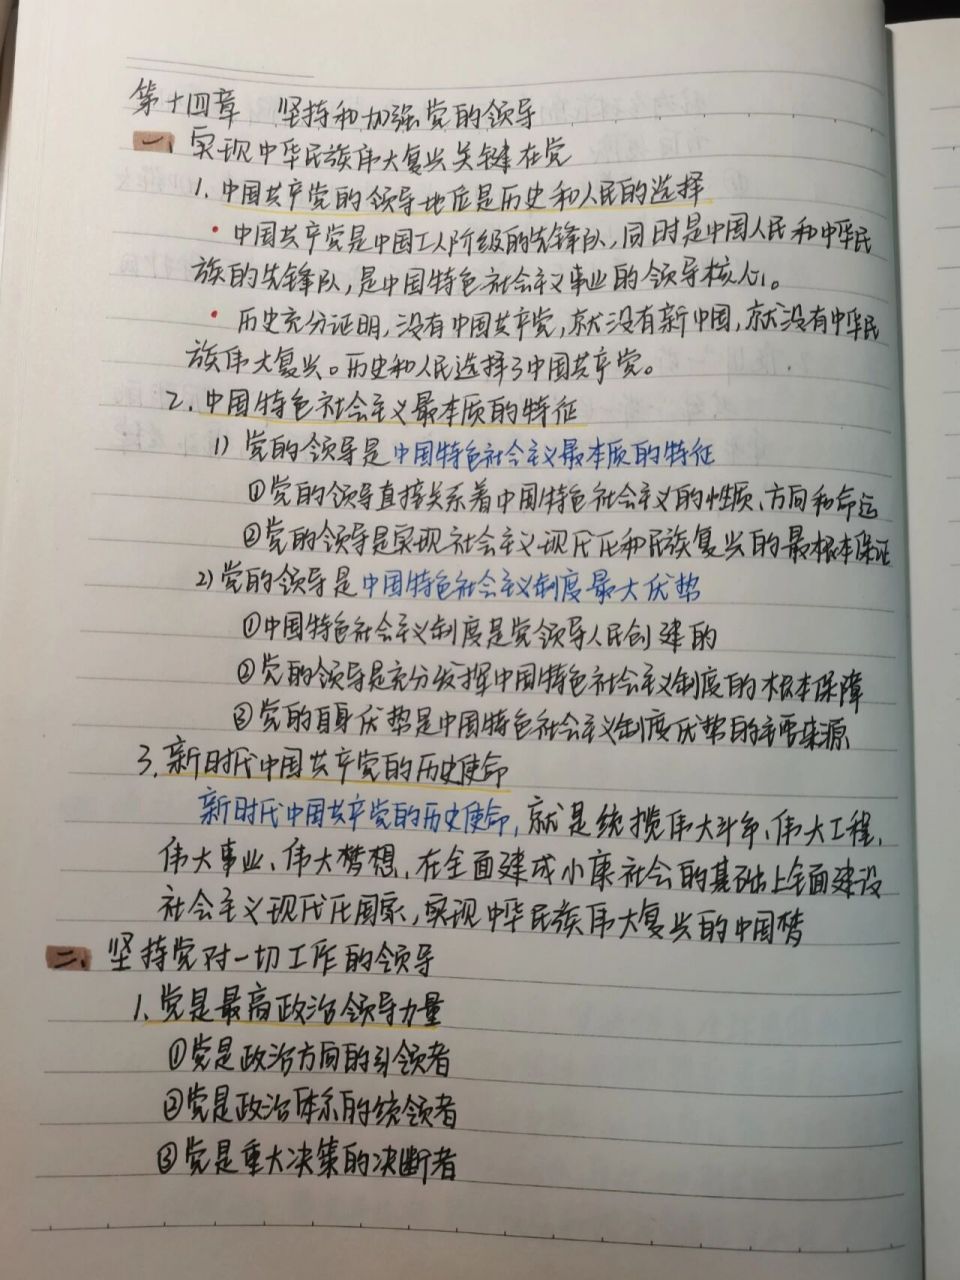 第十四章 坚持和加强党的领导
一、实现中华民族伟大复兴关键在党
1. 中国共产党的领导地位是历史和人民的选择
· 中国共产党是中国工人阶级的先锋队,同时是中国人民和中华民
族的先锋队,是中国特色社会主义事业的领导核心。
· 历史充分证明,没有中国共产党,就没有新中国,就没有中华民
族伟大复兴。历史和人民选择了中国共产党。
2. 中国特色社会主义最本质的特征
1) 党的领导是中国特色社会主义最本质的特征
①党的领导直接关系着中国特色社会主义的性质、方向和命运
②党的领导是实现社会主义现代化和民族复兴的最根本保证
2) 党的领导是中国特色社会主义制度最大优势
①中国特色社会主义制度是党领导人民创建的
②党的领导是充分发挥中国特色社会主义制度的根本保障
③党的自身优势是中国特色社会主义制度优势的主要来源
3. 新时代中国共产党的历史使命
新时代中国共产党的历史使命,就是统揽伟大斗争、伟大工程、
伟大事业、伟大梦想,在全面建成小康社会的基础上全面建设
社会主义现代化国家,实现中华民族伟大复兴的中国梦
二、坚持党对一切工作的领导
1. 党是最高政治领导力量
①党是政治方向的引领者
②党是政治体系的统领者
③党是重大决策的决断者